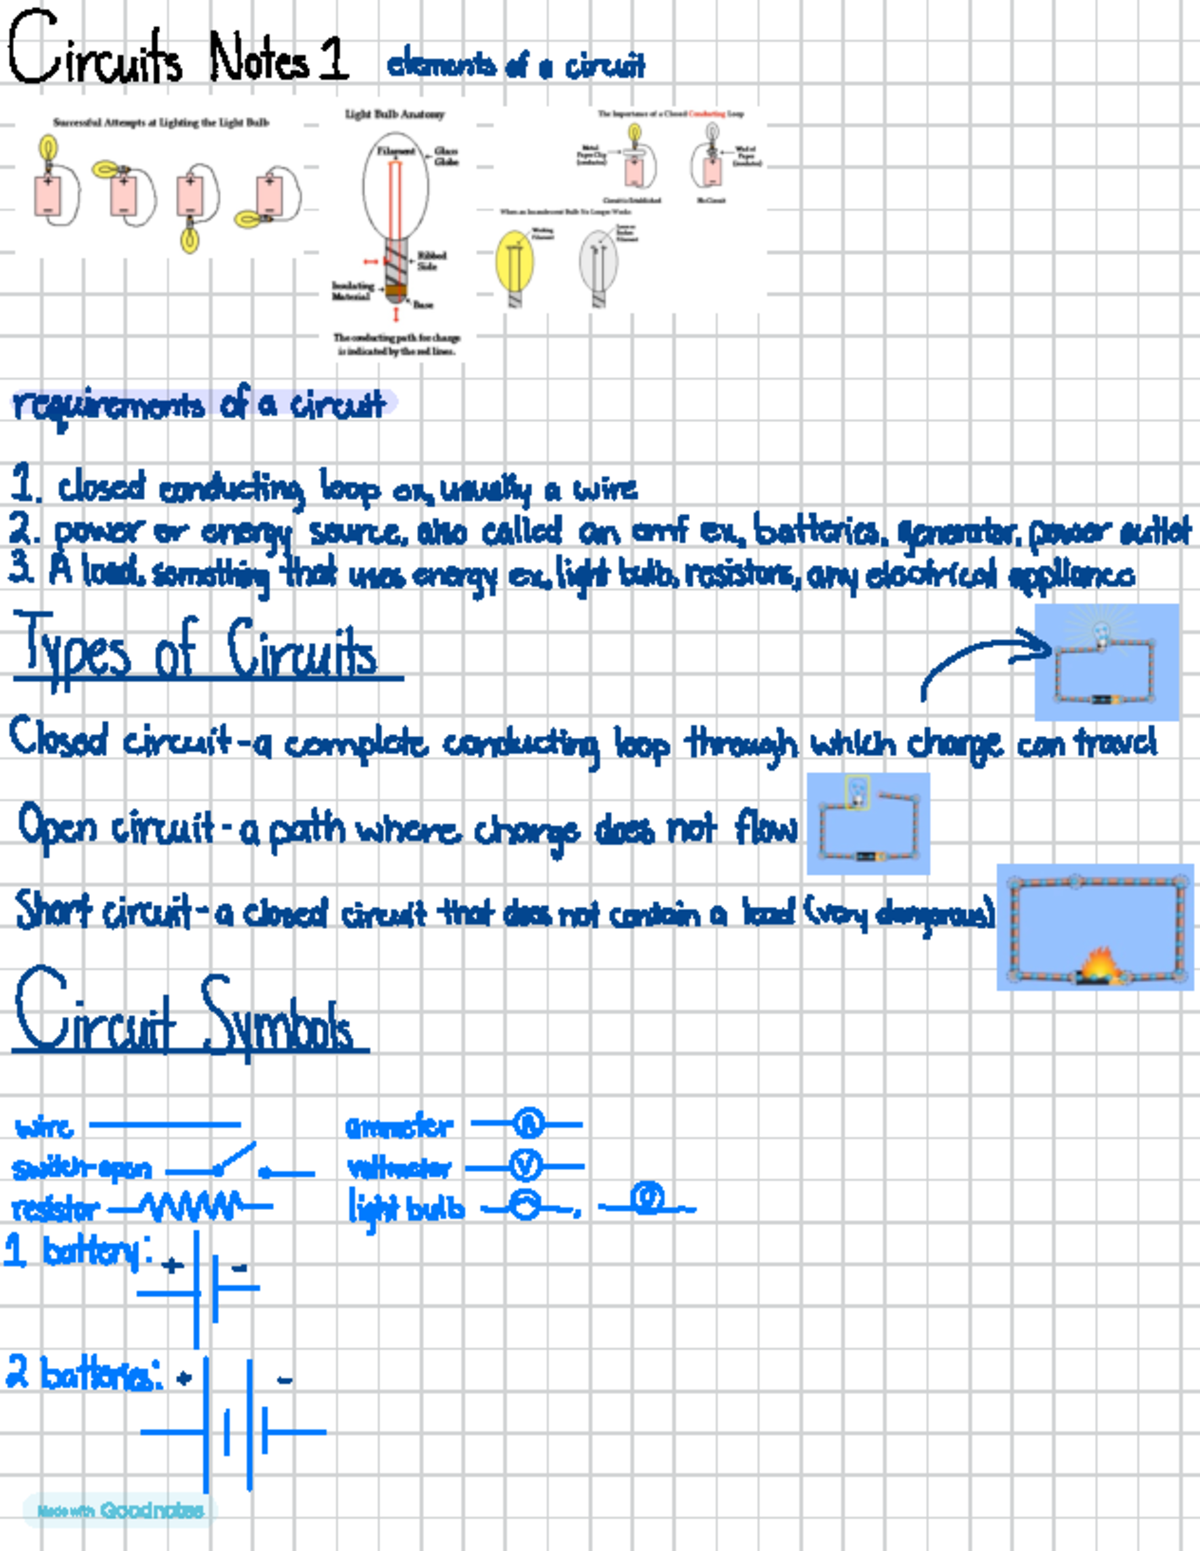 Circuits Notes 1 elements of a circuit
Successful Attempts at Lighting the Light Bulb
Light Bulb Anatomy
Filament
Glass Globe
Ribbed Side
Insulating Material
Base
The conducting path for charge
is indicated by the red lines.
The Importance of a Closed Conducting Loop
Metal
Paper Clip
(conductor)
Wad of
Paper
Circuit is Established
No Circuit
When an Incandescent Bulb No Longer Works
Working
Filament
Broken
Filament
requirements of a circuit
1. closed conducting loop ex, usually a wire
2. power or energy source, also called an emf ex, batteries, generator, power outlet
3. A load, something that uses energy ex, light bulb, resistors, any electrical appliance
Types of Circuits
Closed circuit - a complete conducting loop through which charge can travel
Open circuit - a path where charge does not flow
Short circuit - a closed circuit that does not contain a load (very dangerous)
Circuit Symbols
wire
ammeter A
switch-open
voltmeter V
resistor
light bulb ,
1 battery: + -
2 batteries: + -
Made with Goodnotes